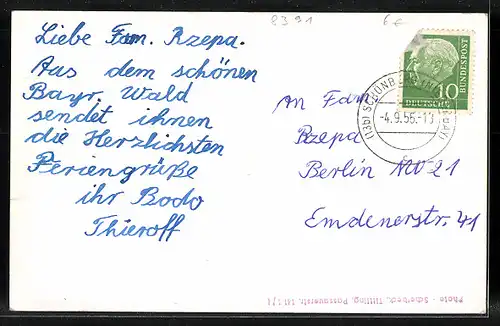 8391
6€
Liebe Fam. Rzepa.
Aus dem schönen
Bayr. Wald
sendet ihnen
die Herzlichsten
Feriengrüße
ihr Bodo
Thieroff
DEUTSCHE BUNDESPOST
10
(13b) SCHÖNB
-4.9.56.-1
An Fam
Rzepa
Berlin NW 21
Emdenerstr. 41
Photo - Scherbeck, Tittling, Passauerstr.